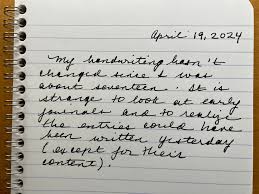 April 19, 2024
My handwriting hasn't
changed since I was
about seventeen. It is
strange to look at early
journals and to realize
the entries could have
been written yesterday
(except for their
content).